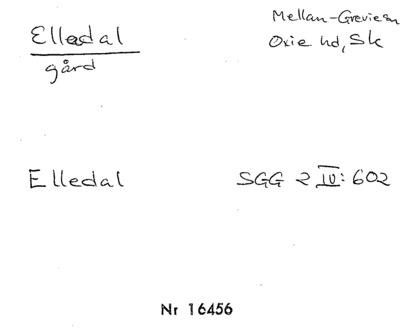 Elledal
Mellan-Grevie sn
gård
Oxie hd, Sk
Elledal
SGG 2 IV: 602
Nr 16456